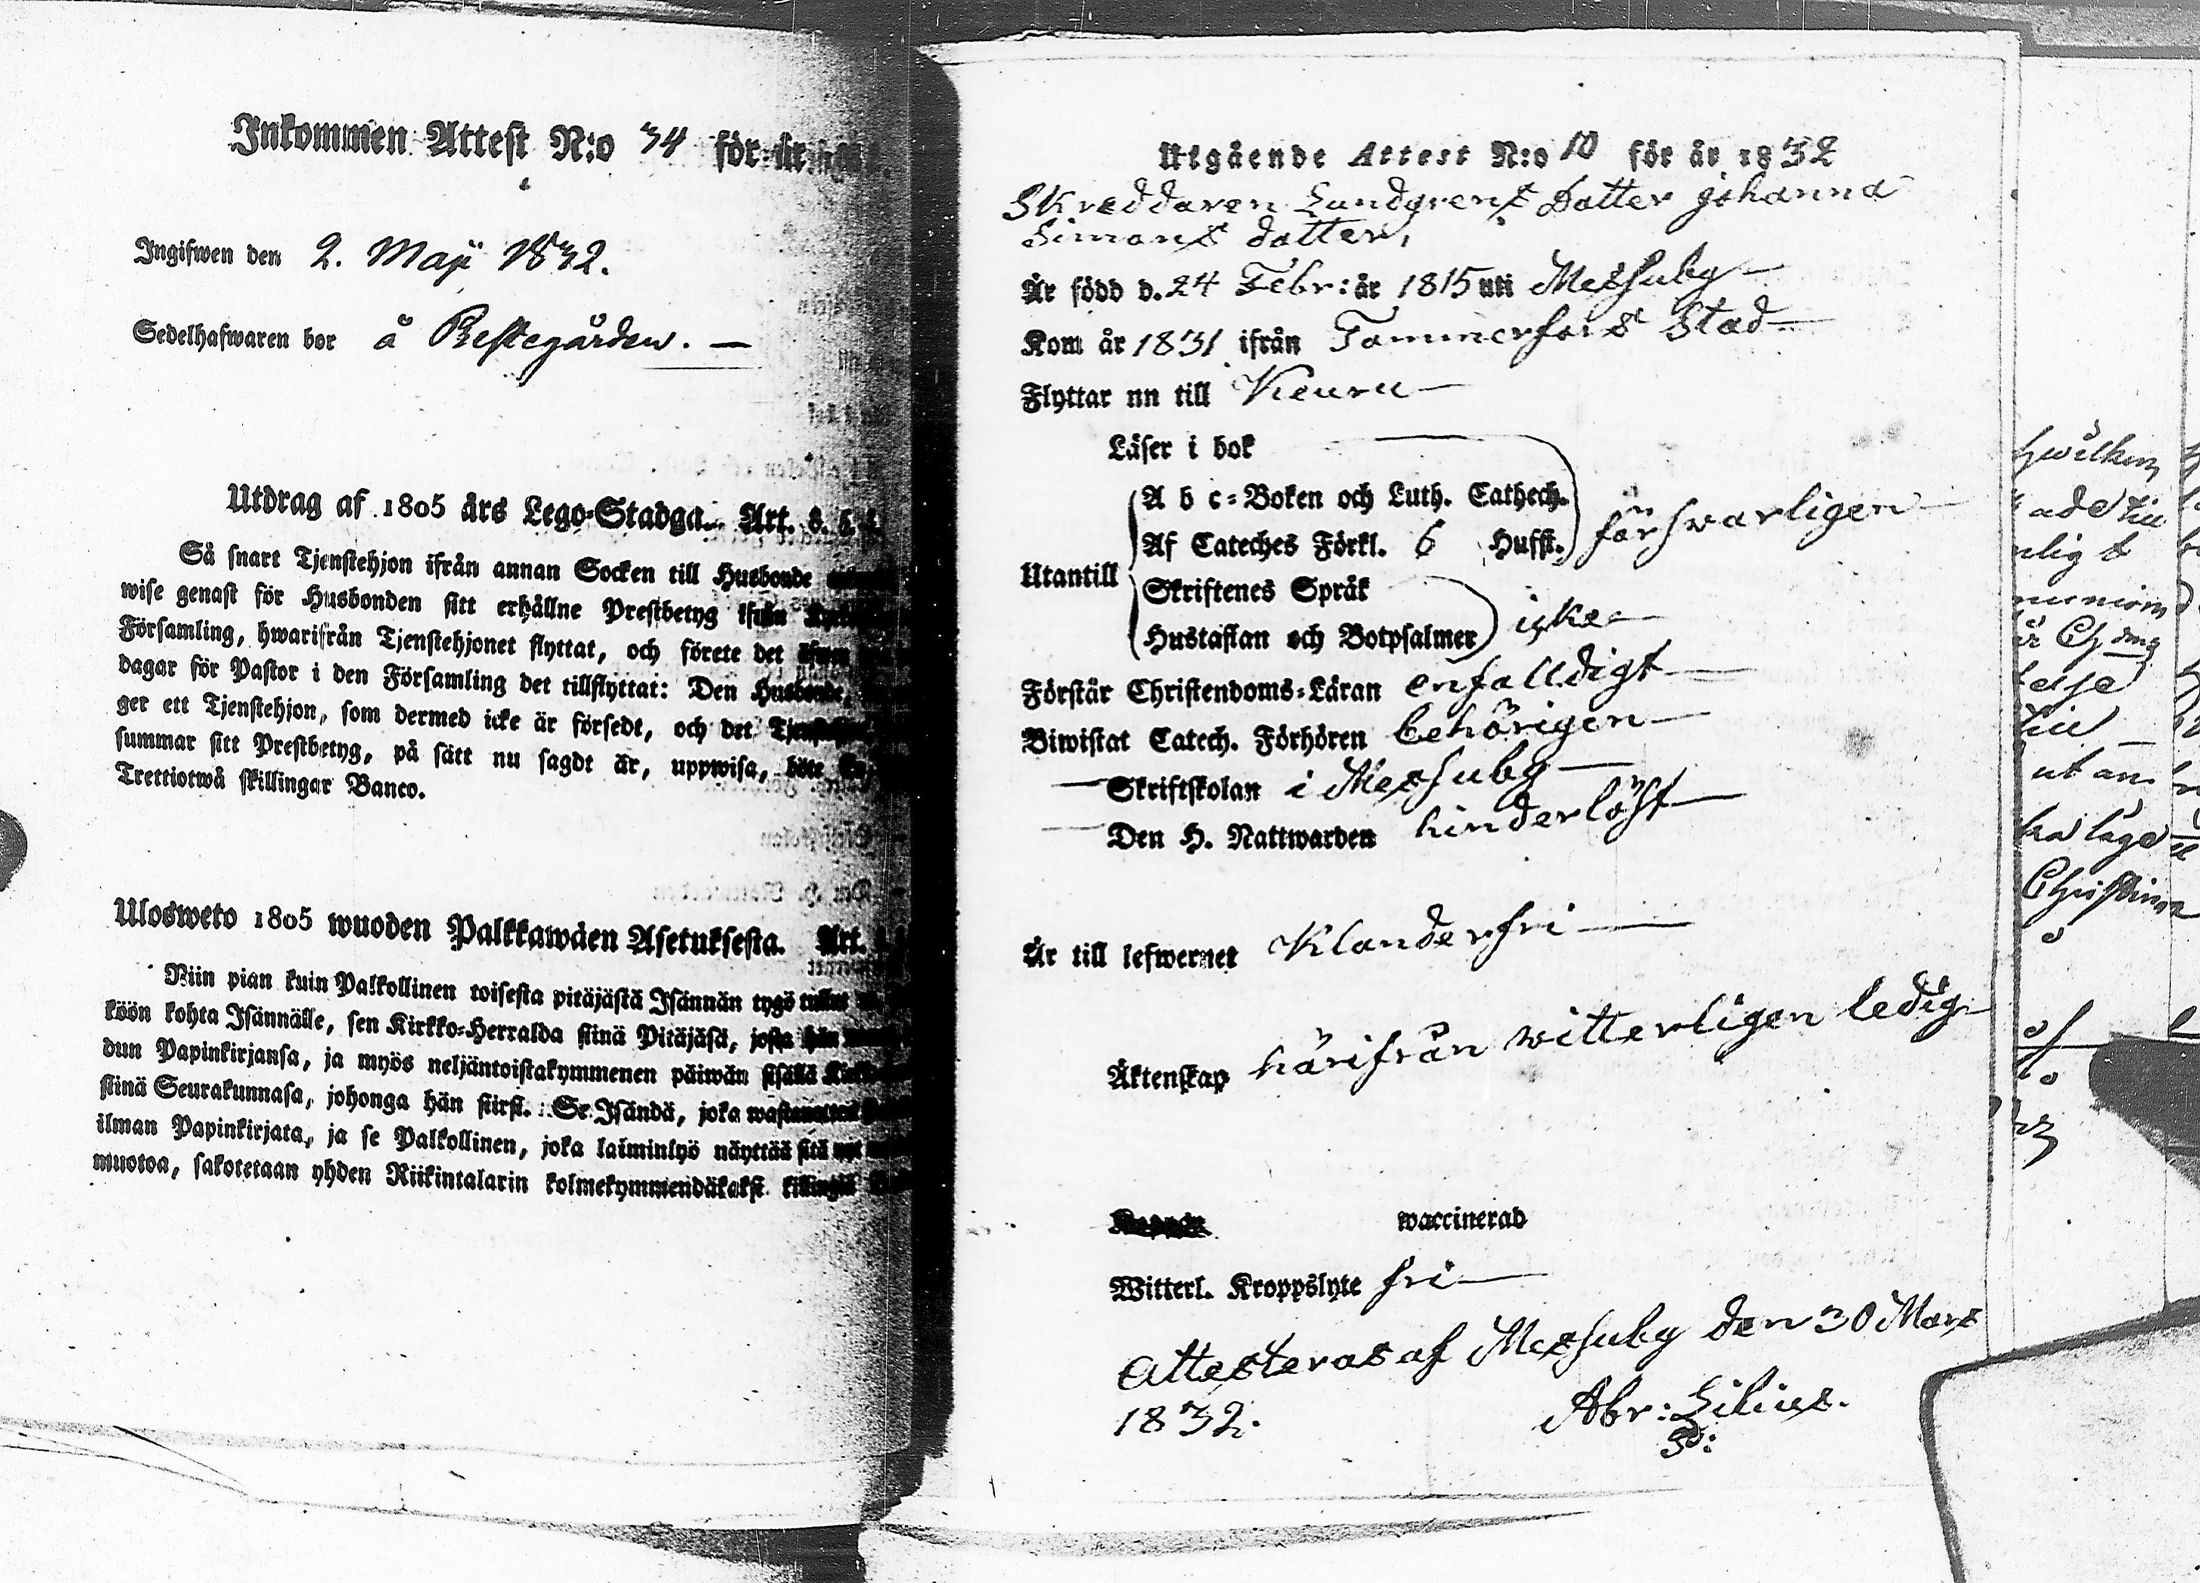 Inkommen Attest N:o 34 för år
Ingifwen den 2. Maji 1832.
Sedelhafwaren bor å Prestegården. —
Utdrag af 1805 års Lego-Stadga. Art. 8. §.
Så snart Tjenstehjon ifrån annan Socken till Husbonde
wise genast för Husbonden sitt erhållne Prestbetyg ifrån
Församling, hwarifrån Tjenstehjonet flyttat, och förete det
dagar för Pastor i den Församling det tillflyttat: Den Husbonde,
ger ett Tjenstehjon, som dermed icke är försedt, och det
summar sitt Prestbetyg, på sätt nu sagdt är, uppwisa, böte
Trettiotwå skillingar Banco.
Ulosweto 1805 wuoden Palkkawäen Asetuksesta. Art.
Niin pian kuin Palkollinen toisesta pitäjästä Isännän tygö tullut
köön kohta Isännälle, sen Kirkko-Herralda siinä Pitäjäsä, josta hän
dun Papinkirjansa, ja myös neljäntoistakymmenen päiwän sisällä
siinä Seurakunnasa, johonga hän siirsi. Se Isändä, joka
ilman Papinkirjata, ja se Palkollinen, joka laiminlyö näyttää sitä nyt
muotoa, sakotetaan yhden Riikintalarin kolmekymmendäkaksi killingiä
Utgående Attest N:o 10 för år 1832
Skreddaren Lundgrens Dotter Johanna
Simons dotter,
Är född d. 24 Febr: år 1815 uti Messuby —
Kom år 1831 ifrån Tammerfors Stad —
Flyttar nu till Keuru —
Läser i bok
A b c-Boken och Luth. Cathech.
försvarligen —
Af Cateches Förkl. 6 Hufst.
Utantill
Skriftenes Språk
icke —
Hustaflan och Botpsalmer
Förstår Christendoms-Läran enfalldigt —
Biwistat Catech. Förhören behörigen —
— Skriftskolan i Messuby —
— Den H. Nattwarden hinderlöst —
Är till lefwernet Klanderfri —
Äktenskap härifrån witterligen ledig —
waccinerad
Witterl. Kroppslyte fri —
Attesteras af Messuby den 30 Mars
1832. Abr: Lilius.
hwilken
ut an
Christina